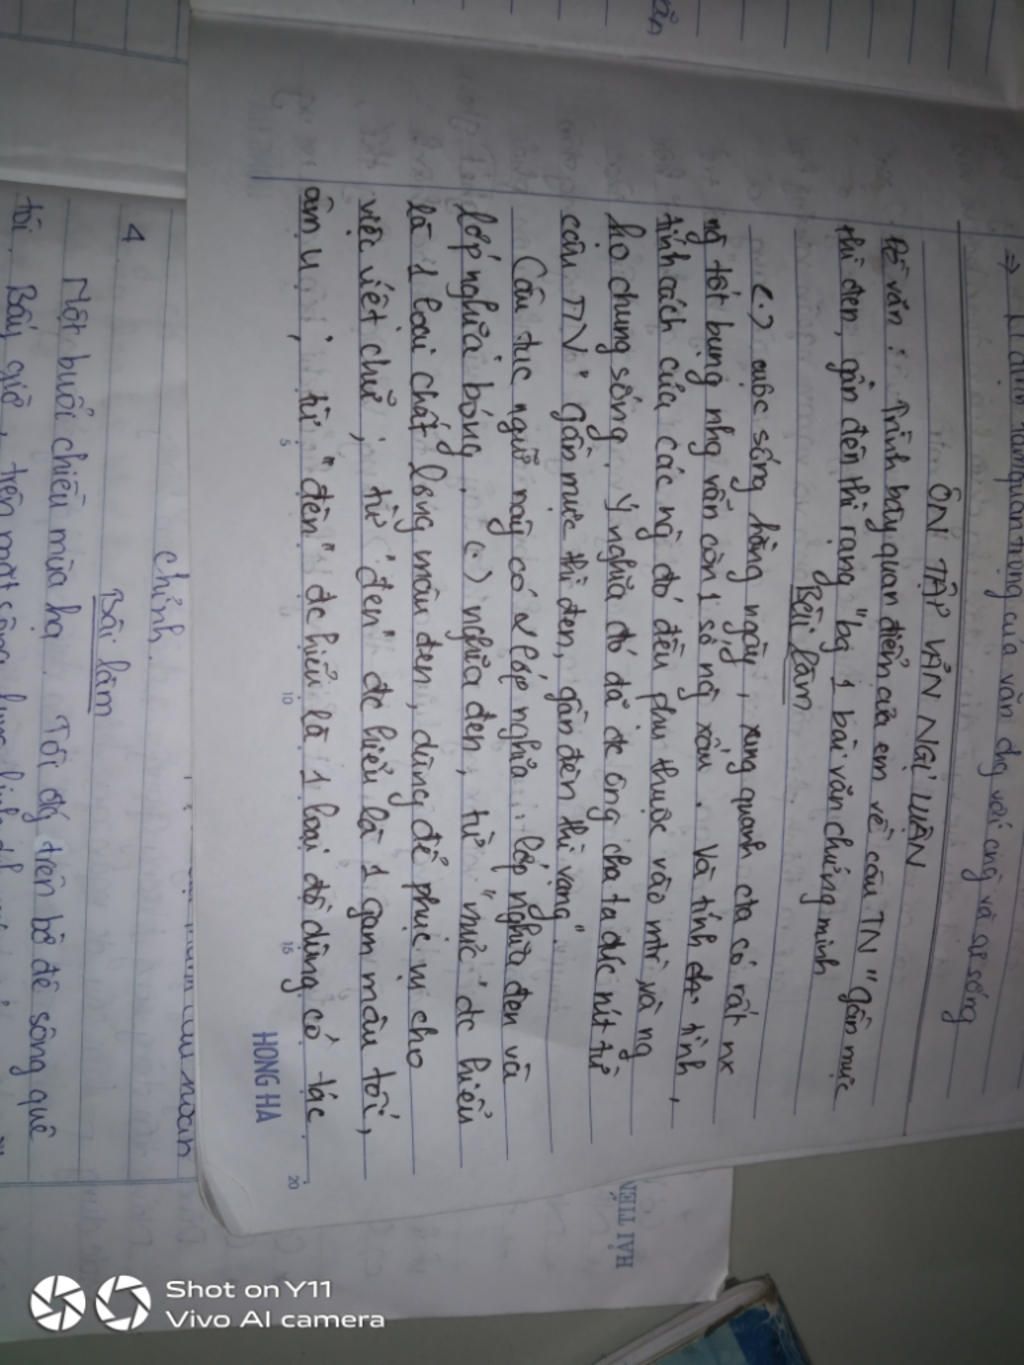 tầm quan trọng của văn chg với cng và sự sống
ÔN TẬP VĂN NGỊ LUẬN
Đề văn : Trình bày quan điểm của em về câu TN "gần mực
thì đen, gần đèn thì rạng" bg 1 bài văn chứng minh
Bài làm
(.) cuộc sống hằng ngày, xung quanh cta có rất nx
ng tốt bụng nhg vẫn còn 1 số ng xấu. Và tính tình,
tính cách của các ng đó đều phụ thuộc vào mtr và ng
họ chung sống. Ý nghĩa đó đã đc ông cha ta đúc rút từ
câu TN "gần mực thì đen, gần đèn thì rạng".
Câu tục ngữ này có 2 lớp nghĩa: lớp nghĩa đen và
lớp nghĩa bóng. (.) nghĩa đen, từ "mực" đc hiểu
là 1 loại chất lỏng màu đen, dùng để phục vụ cho
việc viết chữ, từ "đen" đc hiểu là 1 gam màu tối,
âm u, từ "đèn" đc hiểu là 1 loại đồ dùng có tác
5 10 15 20
HONG HA
HAI TIEN
chỉnh.
Bài làm
4
Một buổi chiều mùa hạ. Tôi đg trên bờ đê sông quê
tôi. Bấy giờ, trên mặt sông
Shot on Y11
Vivo AI camera